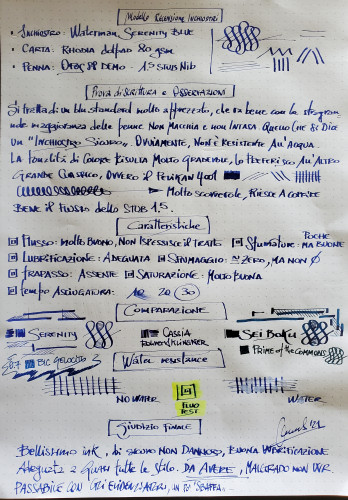 Modello Recensione Inchiostri
• Inchiostro: Waterman Serenity Blue
• Carta: Rhodia dotpad 80 gsm
• Penna: Opus 88 Demo - 1.5 Stub Nib
Prova di scrittura e Osservazioni
Si tratta di un blu standard molto apprezzato, che va bene con la stragran
de maggioranza delle penne. Non macchia e non intasa. Quello che si dice
un "Inchiostro Sicuro". Ovviamente, non è resistente all'acqua.
La tonalità di colore risulta molto gradevole, lo preferisco all'altro
grande classico, ovvero il Pelikan 4001
Molto scorrevole, riesce a coprire
bene il flusso dello stub 1.5.
Caratteristiche
Flusso: molto buono, non ispessisce il tratto Sfumature: poche ma buone
Lubrificazione: Adeguata Spiumaggio: ≈ zero, ma non Ø
Trapasso: Assente Saturazione: Molto buona
Tempo Asciugatura: 10 20 30
Comparazione
Serenity Cascia Sei Boku
Prime of the Commons
BIC Gelocity
Water resistance
NO WATER FLUO TEST WATER
Giudizio Finale
Bellissimo ink, di sicuro non dannoso, buona lubrificazione
Adeguata a quasi tutte le stilo. Da avere, malgrado non WR.
Passabile con gli evidenziatori, un po' sbaffa.